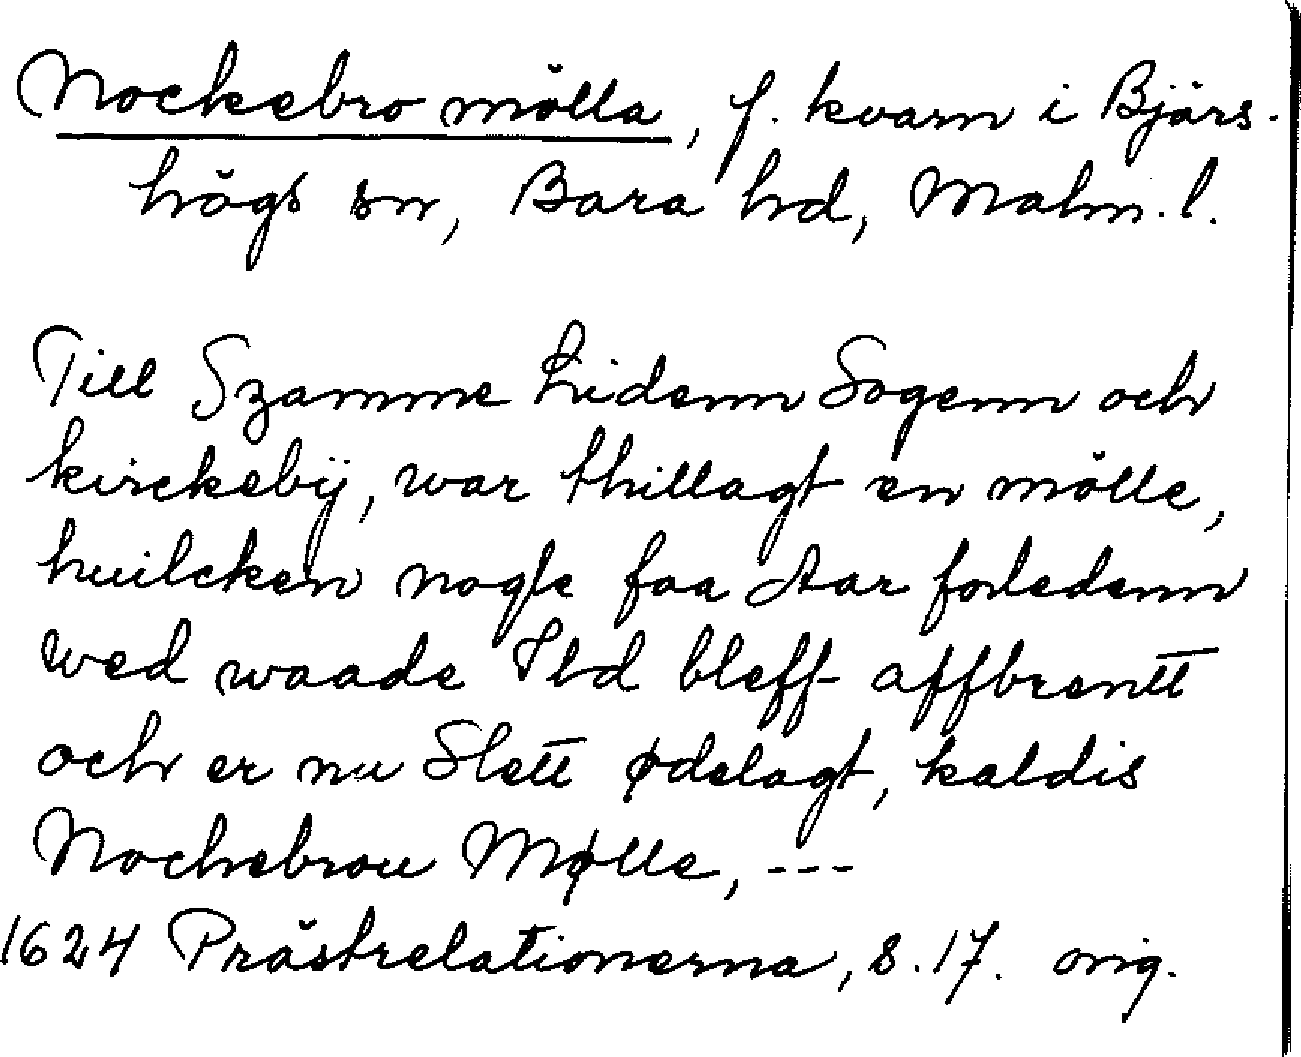 Nockebro mölla, f. kvarn i Bjärs-
högs sn, Bara hd, Malm. l.
Till Szamme Lidenn Sogenn och
kirckebÿ, war thillagt en mölle,
huilcken nogle faa Aar forledenn
wed waade Ild bleff affbrentt
och er nu Slett ødelagt, kaldis
Nochebrou Mølle, ---
1624 Prästrelationerna, s. 17. orig.